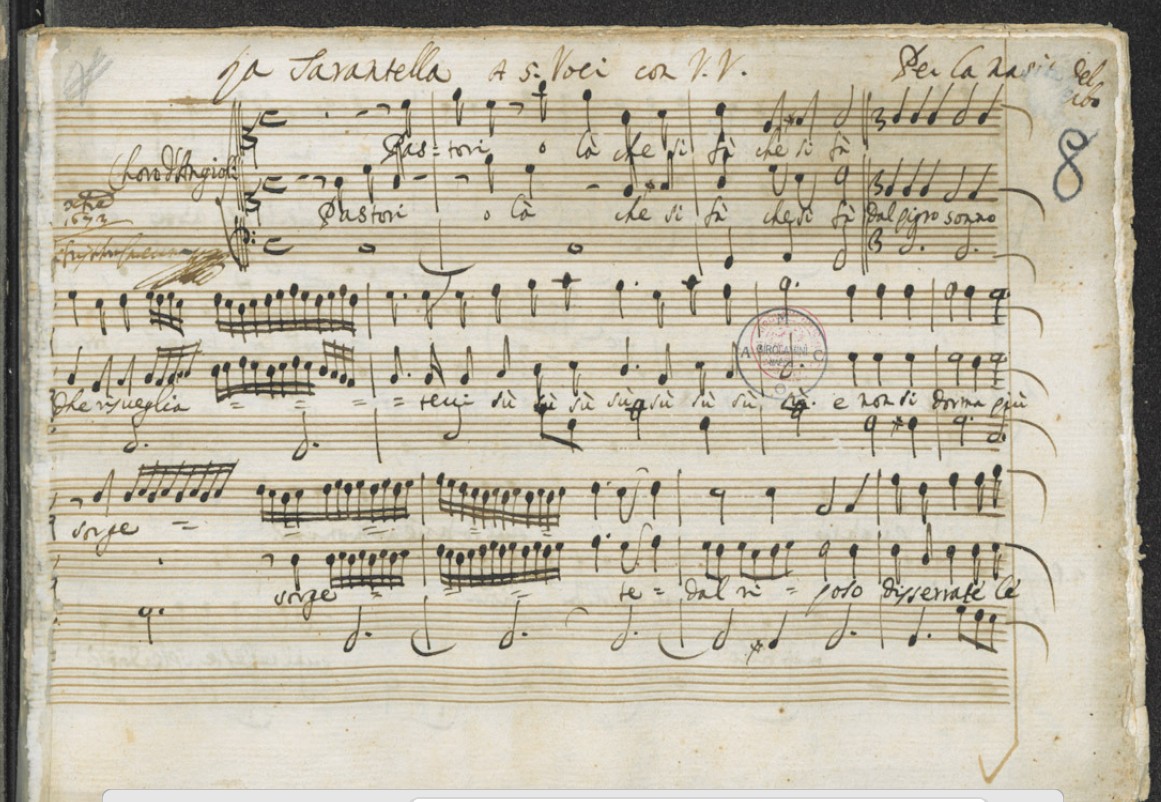 La Tarantella A 5. Voci con V. V. Per la nascita del
Verbo
8
Pas = tori o là che si fà che si fà
Choro d'Angioli
Pastori o là che si fà che si fà dal pigro sonno
1673
GIROLAMINI
che risueglia = = = = teui sù sù sù sù sù sù sù sù. e non si dorma più
sorge = = =
sorge = = te = dal ri = poso disserrate le